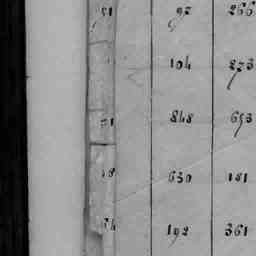 51 92 266
104 273
71 848 653
18 630 181
192 361